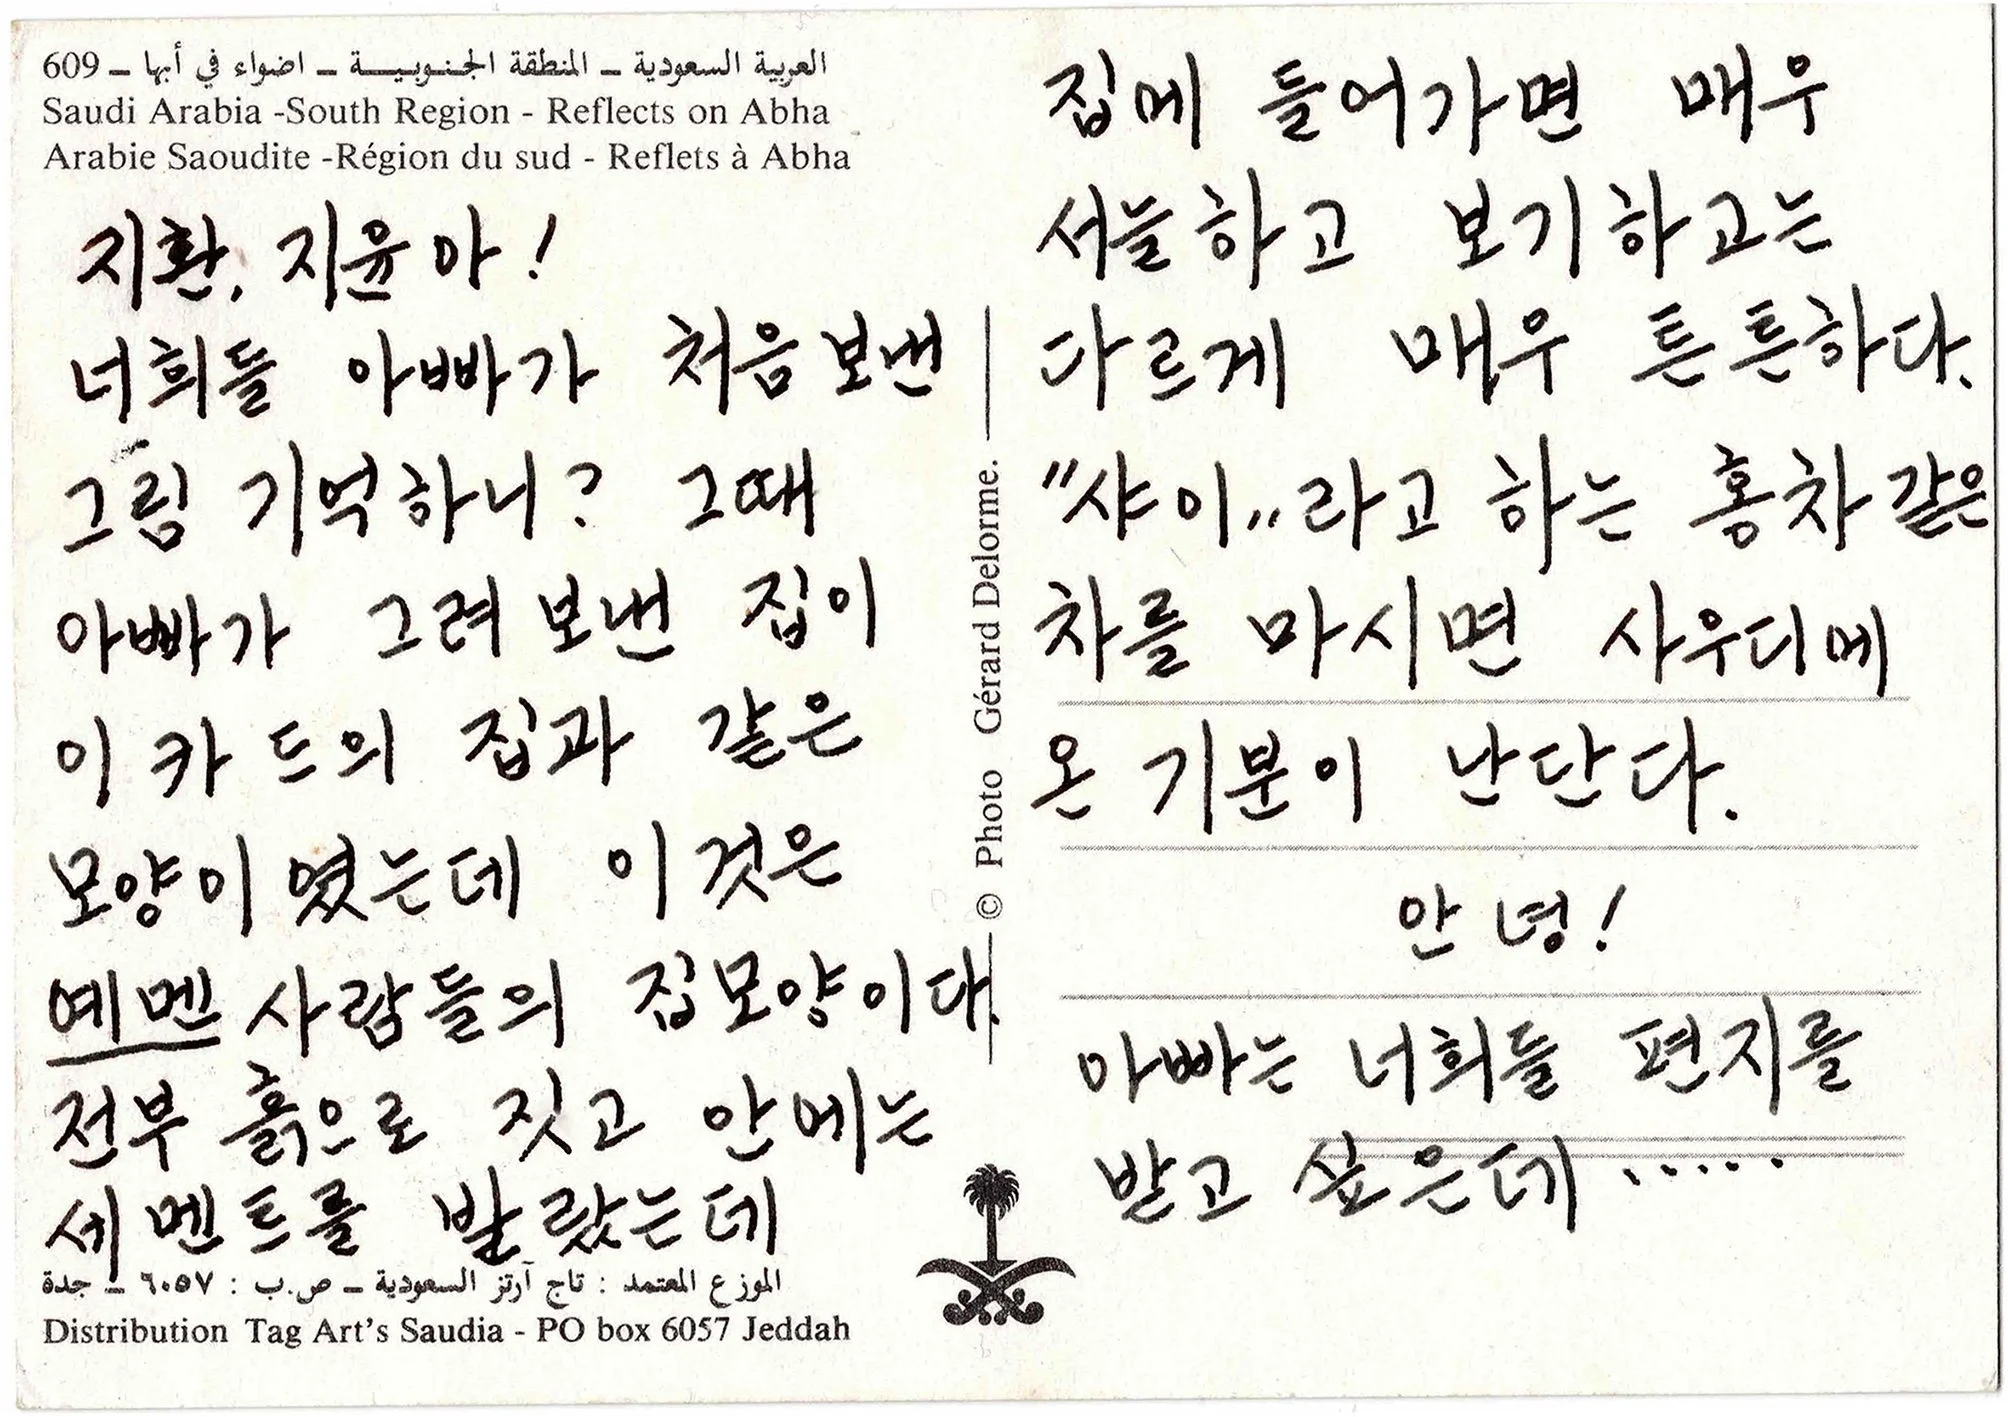 609 – العربية السعودية – المنطقة الجنوبية – اضواء في أبها
Saudi Arabia -South Region - Reflects on Abha
Arabie Saoudite -Région du sud - Reflets à Abha
지환, 지윤아!
너희들 아빠가 처음 보낸
그림 기억하니? 그때
아빠가 그려 보낸 집이
이 카드의 집과 같은
모양이였는데 이것은
예멘 사람들의 집모양이다.
전부 흙으로 짓고 안에는
세멘트를 발랐는데
الموزع المعتمد : تاج آرتز السعودية – ص.ب : ٦٠٥٧ – جدة
Distribution Tag Art's Saudia - PO box 6057 Jeddah
© Photo Gérard Delorme.
집에 들어가면 매우
서늘하고 보기하고는
다르게 매우 튼튼하다.
"샤이„라고 하는 홍차 같은
차를 마시면 사우디에
온 기분이 난단다.
안녕!
아빠는 너희들 편지를
받고 싶은데 ·····